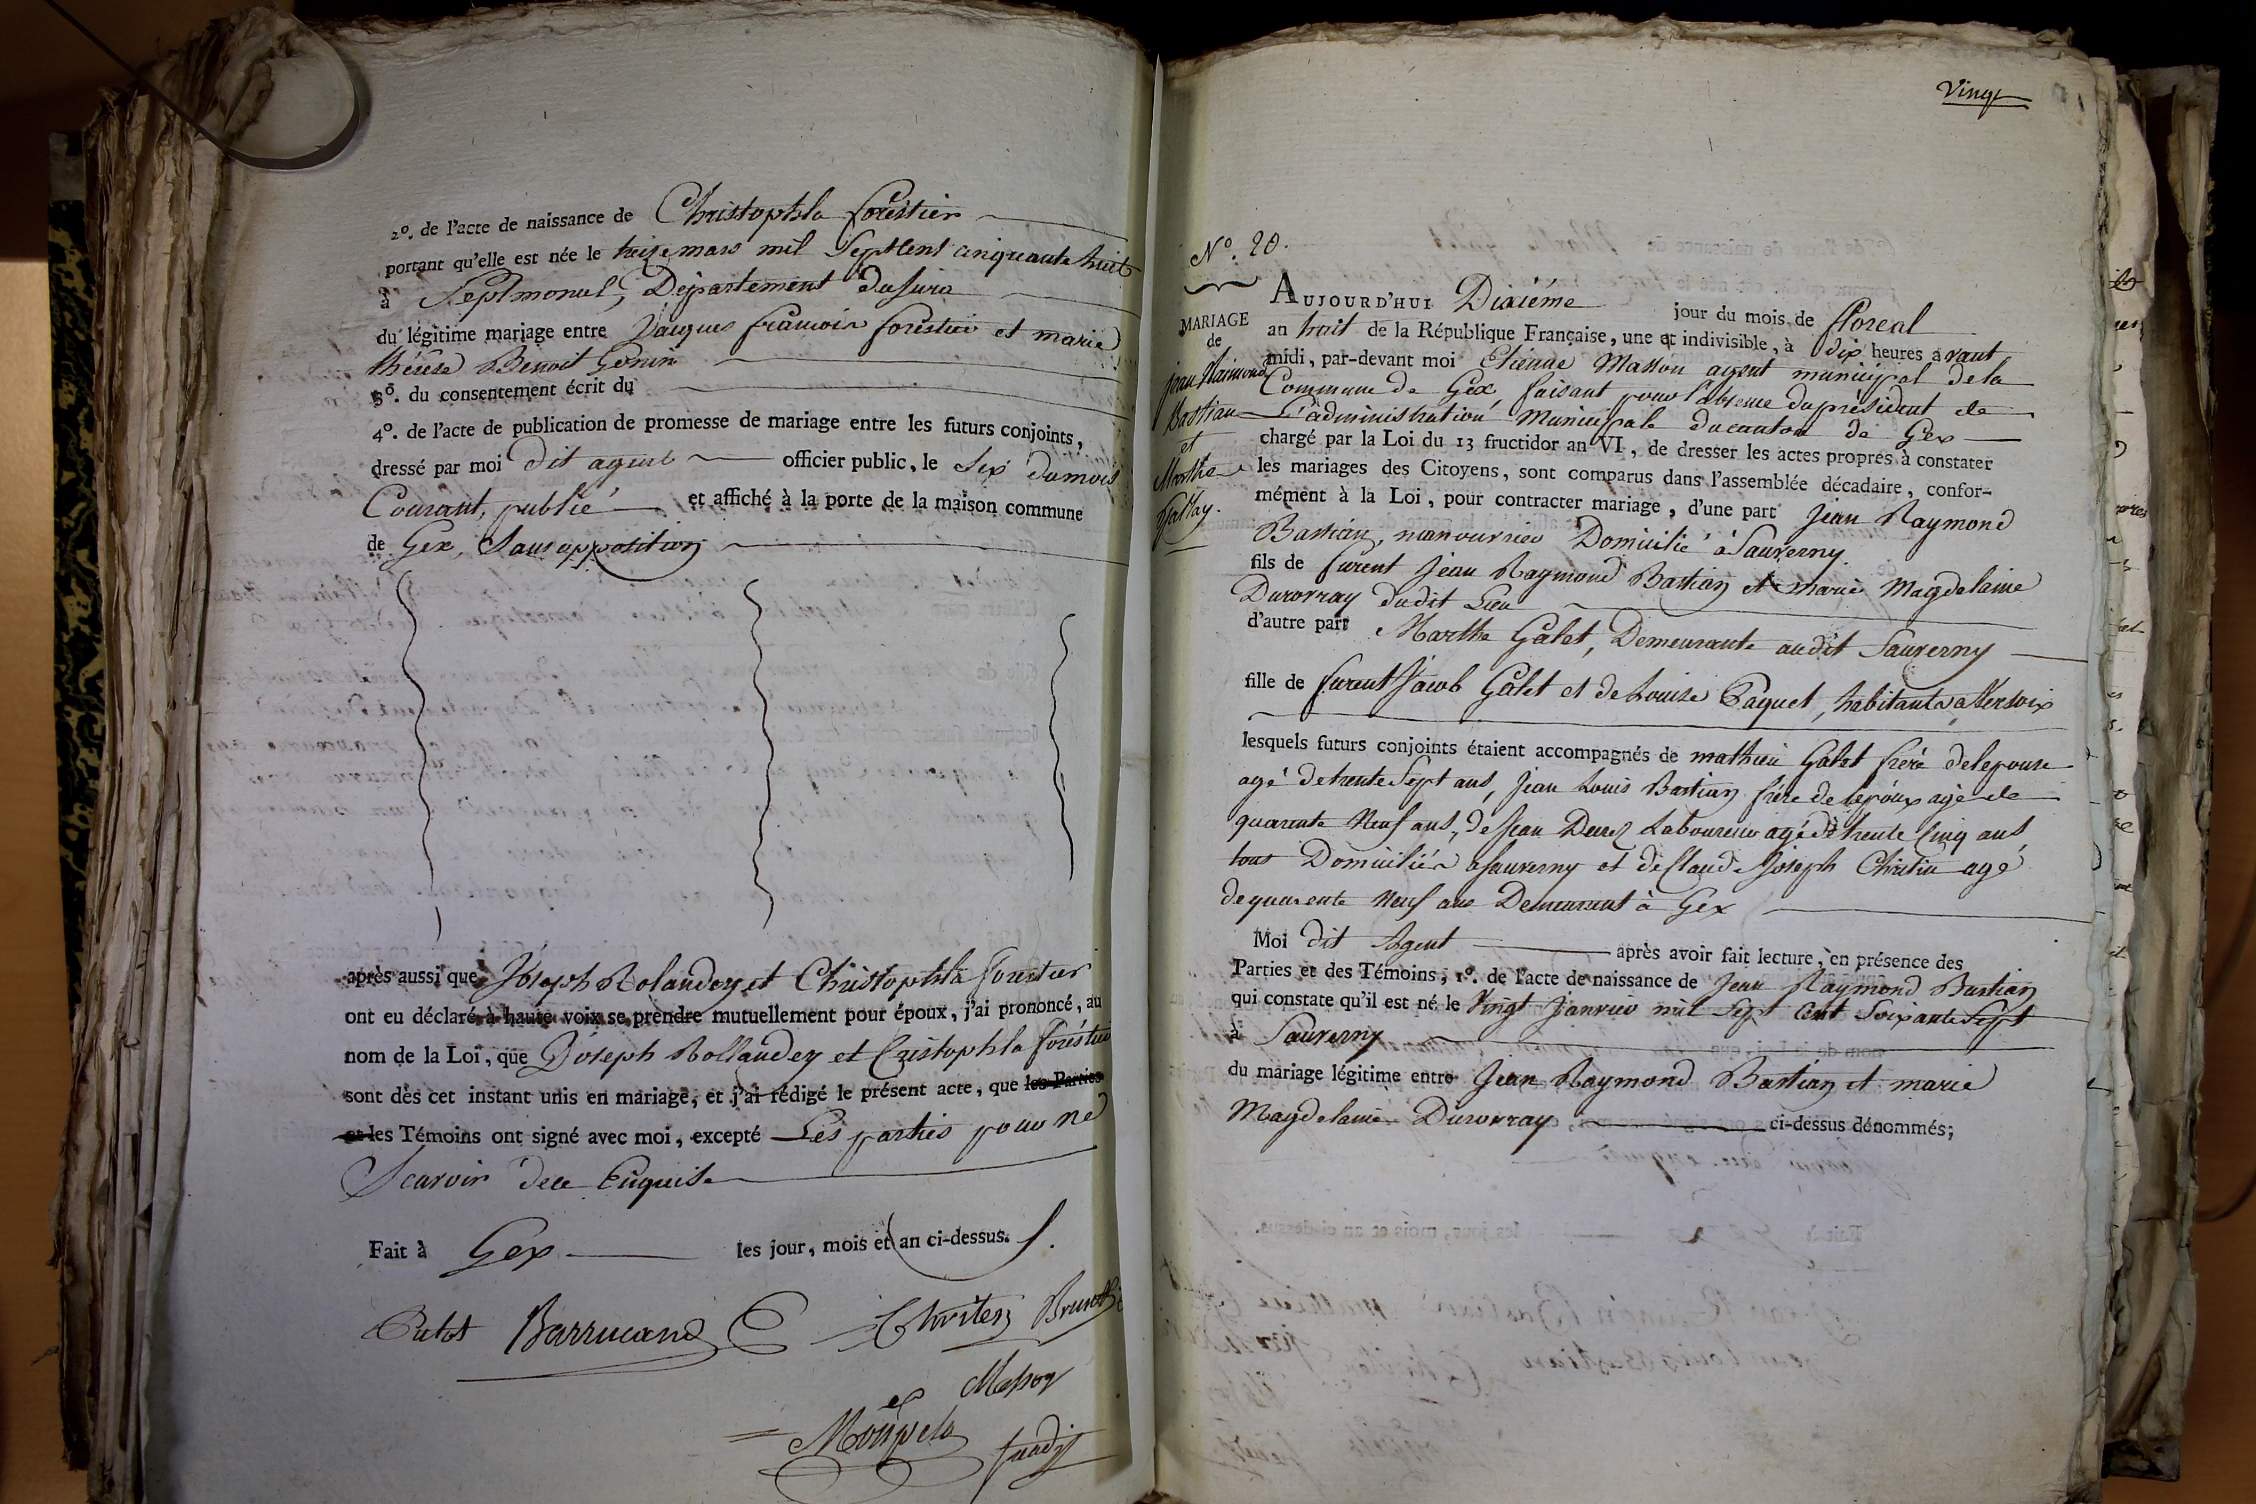 2º. de l'acte de naissance de Christophla forestier
portant qu'elle est née le treize mars mil sept cent cinquante huit
à Septmoncel, Département du Jura
du légitime mariage entre Jacques françois forestier et marie
thérése Benoit Gonin
3º. du consentement écrit du
4º. de l'acte de publication de promesse de mariage entre les futurs conjoints,
dressé par moi dit agent officier public, le six du mois
Courant, publié et affiché à la porte de la maison commune
de Gex, Sans opposition
après aussi que Joseph Rolandey et Christophla forestier
ont eu déclaré à haute voix se prendre mutuellement pour époux, j'ai prononcé, au
nom de la Loi, que Joseph Rollandey et Cristophla foréstier
sont dès cet instant unis en mariage, et j'ai rédigé le présent acte, que les Parties
et les Témoins ont signé avec moi, excepté Les parties pour ne
Scavoir de ce Enquise
Fait à Gex les jour, mois et an ci-dessus.
Barrucand Christin
Masson
Vingt
Nº. 20.
MARIAGE
de
jean Raimond
Bastian
et
Marthe
Gallay.
AUJOURD'HUI Dixiéme jour du mois de floreal
an huit de la République Française, une et indivisible, à dix heures avant
midi, par-devant moi Etienne Masson agent municipal de la
Commune de Gex, faisant pour l'absence du président de
l'administration Municipale du canton de Gex
chargé par la Loi du 13 fructidor an VI, de dresser les actes propres à constater
les mariages des Citoyens, sont comparus dans l'assemblée décadaire, confor-
mément à la Loi, pour contracter mariage, d'une part Jean Raymond
Bastian, manouvrier Domicilié à Sauverny
fils de furent Jean Raymond Bastian et marie Magdelaine
Duvorray dudit Lieu
d'autre part Marthe Galet, Demeurante audit Sauverny
fille de furent Jacob Galet et de Louise Paquet, habitants a Versoix
lesquels futurs conjoints étaient accompagnés de mathieu Galet frére de lepouse
agé de trente Sept ans, Jean Louis Bastian frére de lepoux agé de
quarente Neuf ans, de Jean Laboureur agé de trente Cinq ans
tous Domiciliés a Sauverny et de Claude Joseph Christin agé
de quarente Neuf ans Demeurant à Gex
Moi dit Agent après avoir fait lecture, en présence des
Parties et des Témoins, 1º. de l'acte de naissance de Jean Raymond Bastian
qui constate qu'il est né le Vingt Janvier mil Sept Cent Soixante Sept
à Sauverny
du mariage légitime entre Jean Raymond Bastian et marie
Magdelaine Duvorray ci-dessus dénommés;